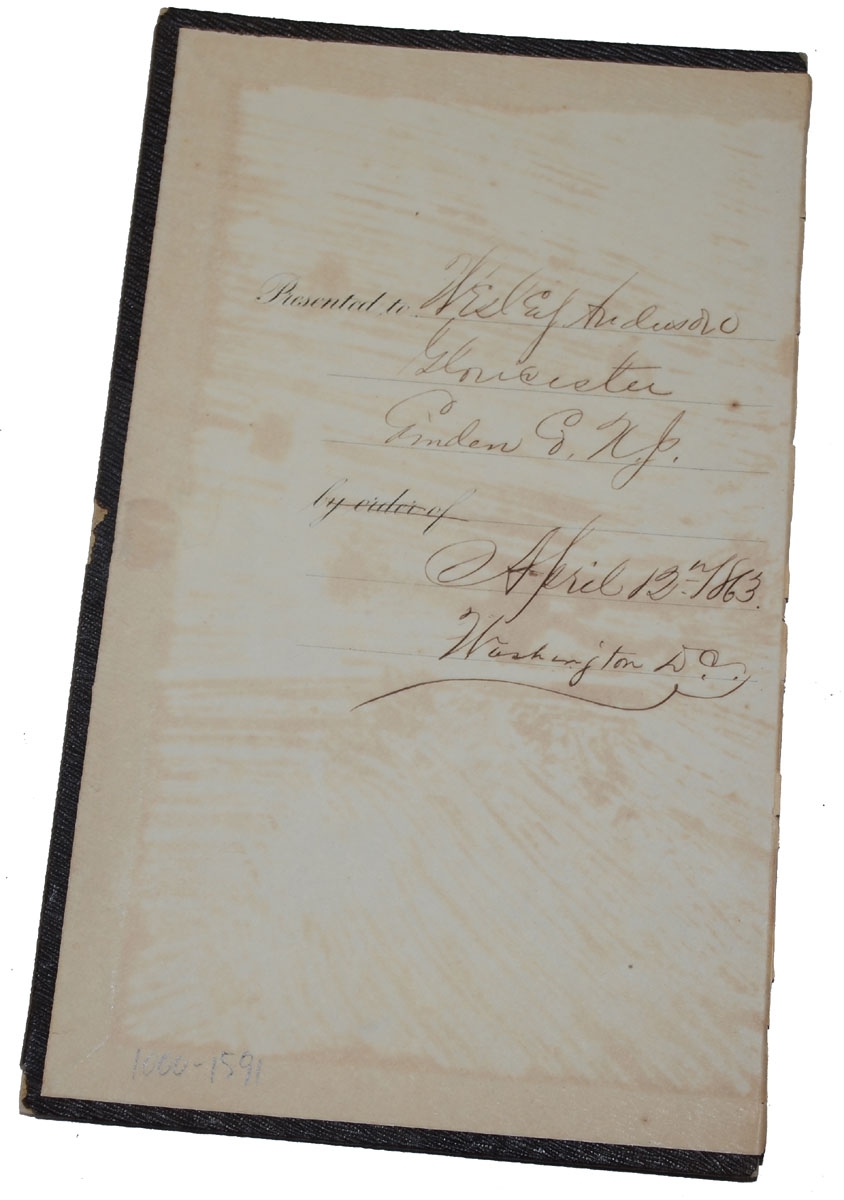 Presented to Wesley Anderson
Gloucester
Camden Co. N.J.
by order of
April 12th 1863.
Washington D.C.
1000-1591